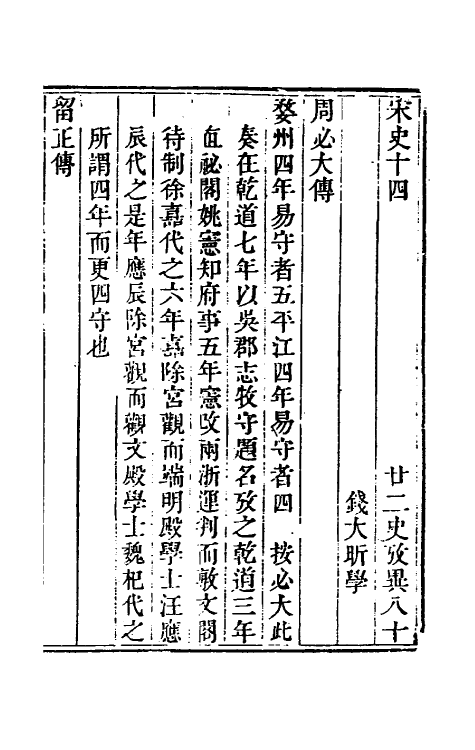 宋史十四　廿二史攷異八十
錢大昕學
周必大傳
婺州四年易守者五平江四年易守者四　按必大此
奏在乾道七年以吳郡志牧守題名攷之乾道三年
直祕閣姚憲知府事五年憲改兩浙運判而敷文閣
待制徐嘉代之六年嘉除宮觀而端明殿學士汪應
辰代之是年應辰除宮觀而觀文殿學士魏杞代之
所謂四年而更四守也
留正傳